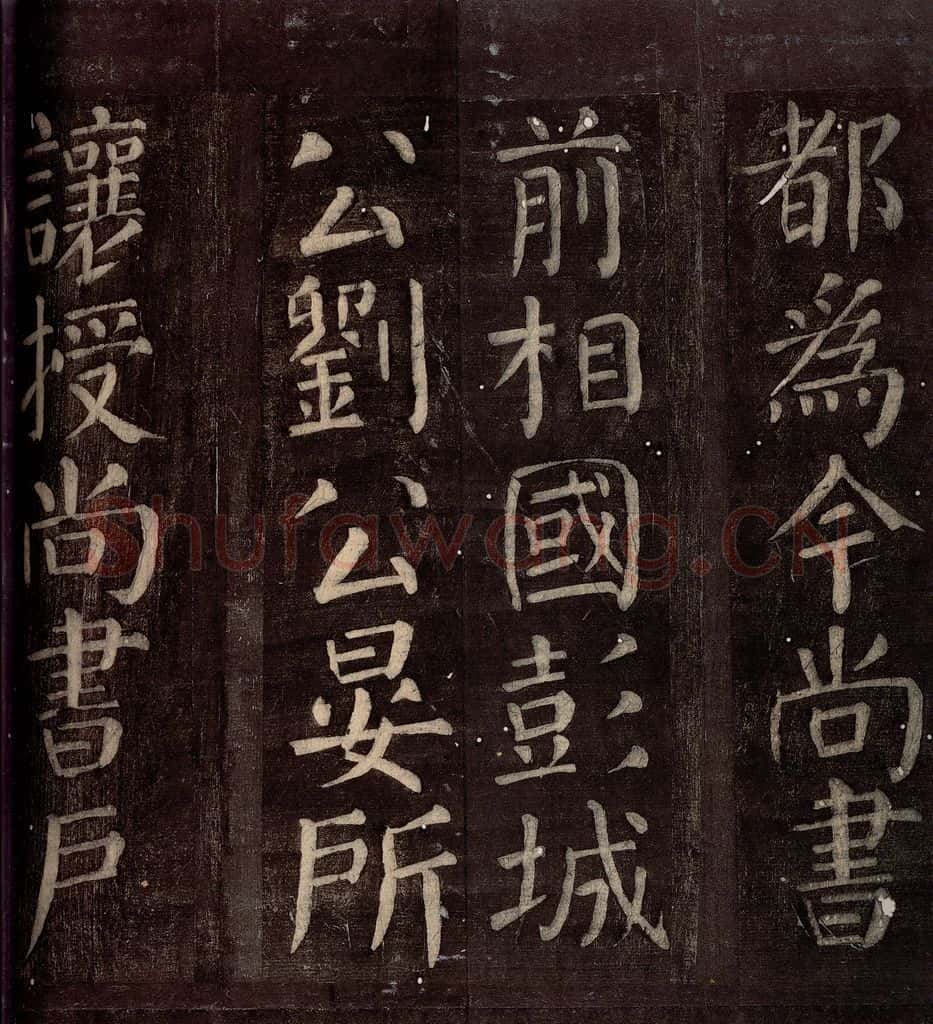 都為令尚書
前相國彭城
公劉公晏所
讓授尚書戶
Shufawang.CN